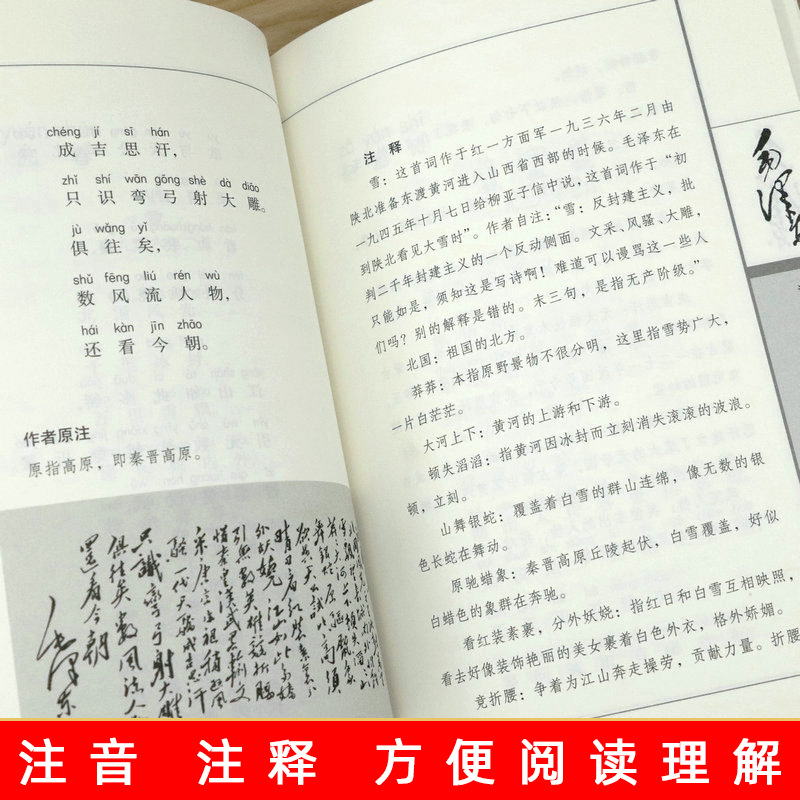 chéng jí sī hán
成吉思汗，
zhǐ shí wān gōng shè dà diāo
只识弯弓射大雕。
jù wǎng yǐ
俱往矣，
shǔ fēng liú rén wù
数风流人物，
hái kàn jīn zhāo
还看今朝。
作者原注
原指高原，即秦晋高原。
引无数英雄竞折腰
惜秦皇汉武略输文
采唐宗宋祖稍逊风
骚一代天骄成吉思汗
只識弯弓射大雕
俱往矣數風流人物
還看今朝
毛泽东
注释
雪：这首词作于红一方面军一九三六年二月由
陕北准备东渡黄河进入山西省西部的时候。毛泽东在
一九四五年十月七日给柳亚子信中说，这首词作于“初
到陕北看见大雪时”。作者自注：“雪：反封建主义，批
判二千年封建主义的一个反动侧面。文采、风骚、大雕，
只能如是，须知这是写诗啊！难道可以谩骂这一些人
们吗？别的解释是错的。末三句，是指无产阶级。”
北国：祖国的北方。
莽莽：本指原野景物不很分明，这里指雪势广大，
一片白茫茫。
大河上下：黄河的上游和下游。
顿失滔滔：指黄河因冰封而立刻消失滚滚的波浪。
顿，立刻。
山舞银蛇：覆盖着白雪的群山连绵，像无数的银
色长蛇在舞动。
原驰蜡象：秦晋高原丘陵起伏，白雪覆盖，好似
白蜡色的象群在奔驰。
看红装素裹，分外妖娆：指红日和白雪互相映照，
看去好像装饰艳丽的美女裹着白色外衣，格外娇媚。
竞折腰：争着为江山奔走操劳，贡献力量。折腰
注音 注释 方便阅读理解